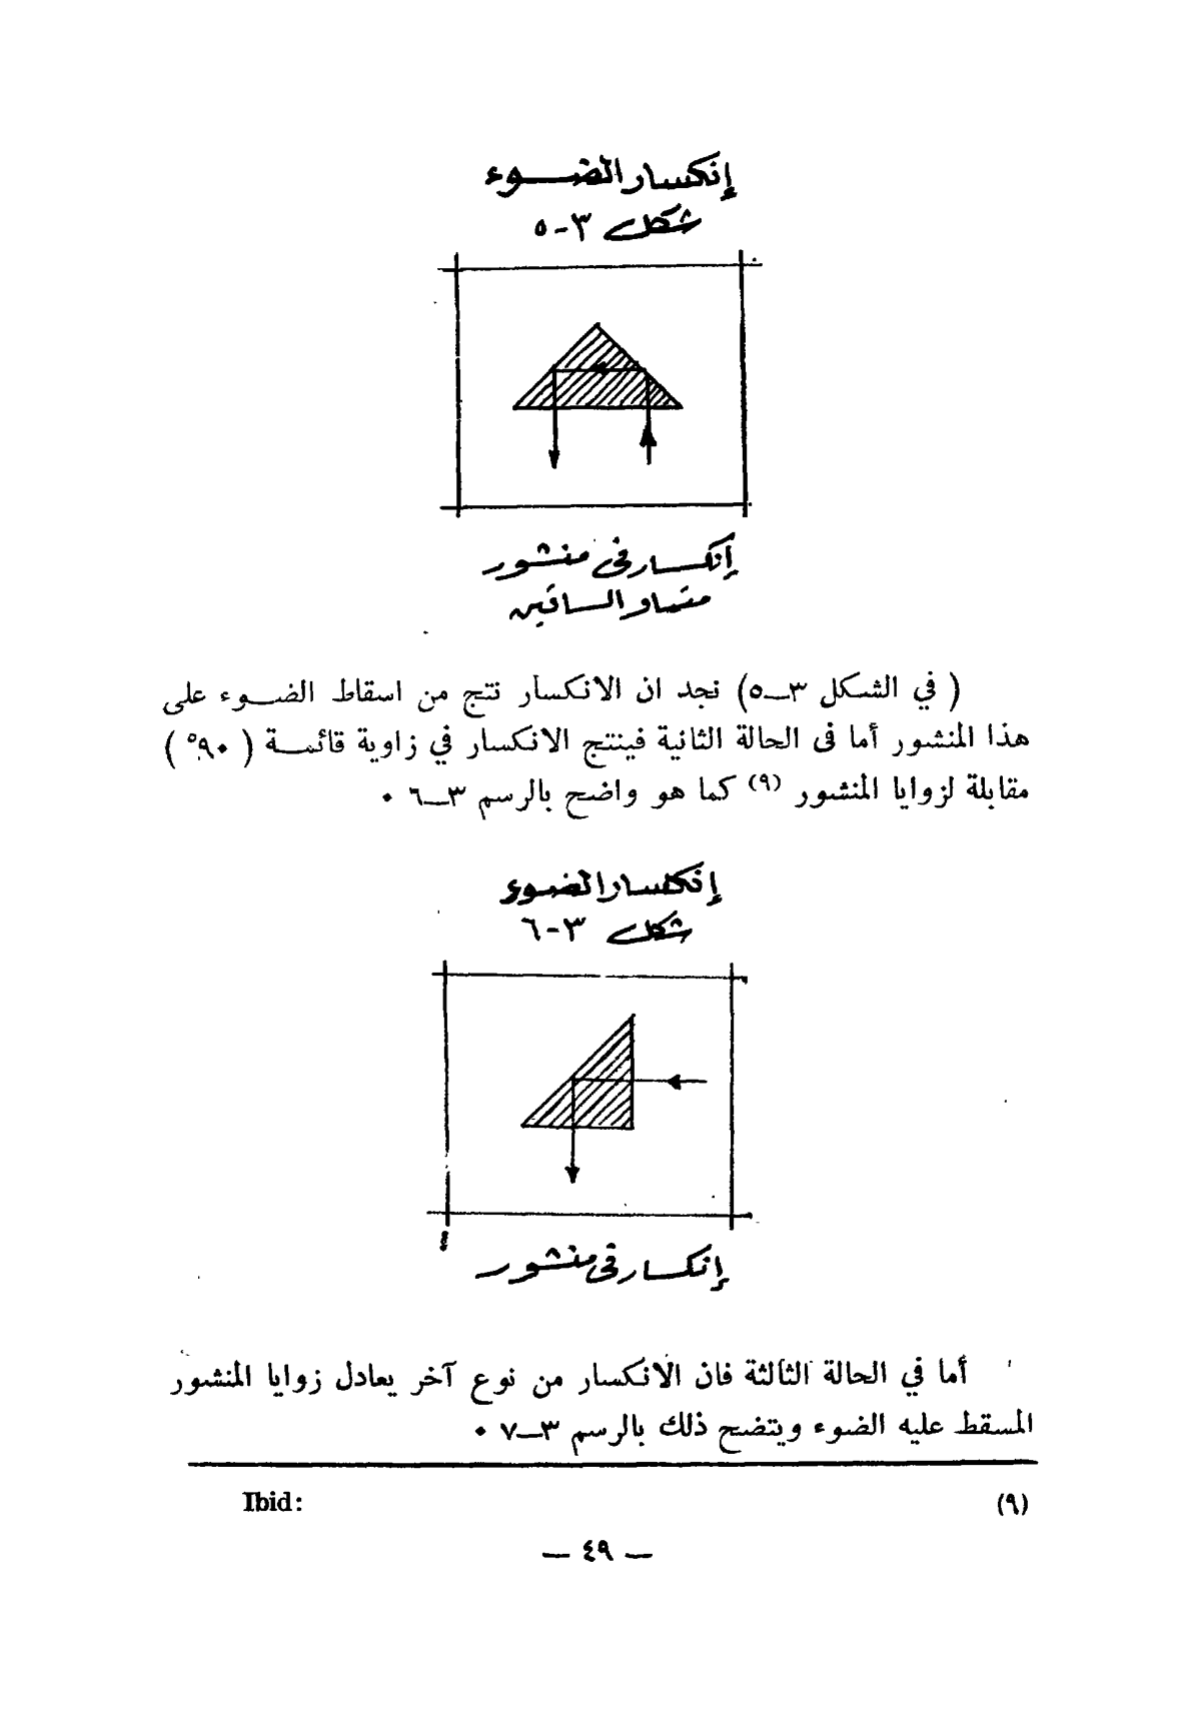 إنكسار الضــوء
شكل ٣-٥
إنكسار في منشور
متساو الساقين
( في الشكل ٣ــ٥) نجد ان الانكسار نتج من اسقاط الضــوء على
هذا المنشور أما فى الحالة الثانية فينتج الانكسار في زاوية قائمــة ( ٩٠° )
مقابلة لزوايا المنشور (٩) كما هو واضح بالرسم ٣ــ٦ ٠
إنكسار الضوء
شكل ٣-٦
إنكسار في منشور
أما في الحالة الثالثة فان الانكسار من نوع آخر يعادل زوايا المنشور
المسقط عليه الضوء ويتضح ذلك بالرسم ٣ــ٧ ٠
(٩) Ibid:
— ٤٩ —